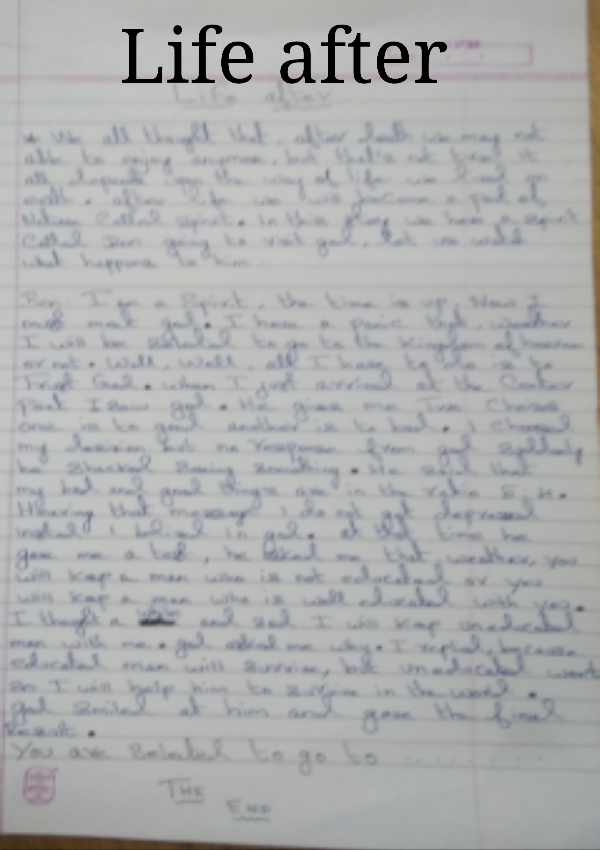 Life after
Life after
* We all thought that, after death we may not
able to enjoy anymore, but that's not true it
all depends upon the way of life we lived on
earth. after life we will become a part of
Nature Called Spirit. In this story we have a Spirit
Called Ben going to visit god, let us watch
what happens to him.
Ben: I am a Spirit, the time is up, Now I
must meet god. I have a panic that, weather
I will be Selected to go to the kingdom of heaven
or not. Well, Well, all I have to do is to
Trust God. when I just arrived at the Center
Point I saw god. He gives me Two Choices
one is to good another is to bad. I
my decision but no response from god
he Started Saying Something. He said that
my bad and good things are in the ratio
Hearing that message I do not get depressed
instead I belived in god. at that time he
gave me a test, he asked me that, weather, you
will keep a man who is not educated or you
will keep a man who is well educated with you.
I thought a and said I will keep uneducated
man with me. god asked me why. I replied, because
educated man will survive, but uneducated won't
so I will help him to survive in the world.
god Smiled at him and gave the final
Result.
You are Selected to go to ..........
THE
END